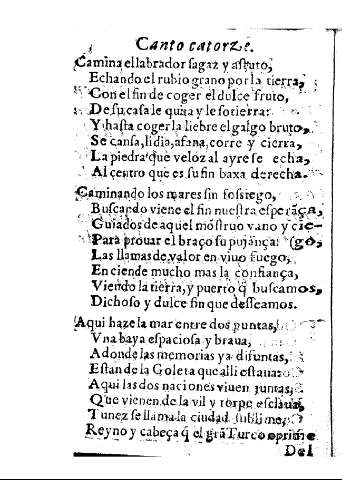 Canto catorze.
Camina el labrador sagaz y astuto,
Echando el rubio grano por la tierra,
Con el fin de coger el dulce fruto,
De su casa le quita y le sotierra:
Y hasta coger la liebre el galgo bruto,
Se cansa, lidia, afana, corre y cierra,
La piedra que veloz al ayre se echa,
Al centro que es su fin baxa derecha.
Caminando los mares sin sossiego,
Buscando viene el fin nuestra esperãça,
Guiados de aquel mostruo vano y cie-
Para prouar el braço su pujãnça: (go,
Las llamas de valor en viuo fuego,
Enciende mucho mas la confiança,
Viendo la tierra, y puerto q̃ buscamos,
Dichoso y dulce fin que desseamos.
Aqui haze la mar entre dos puntas,
Vna baya espaciosa y braua,
Adonde las memorias ya difuntas,
Estan de la Goleta que alli estaua:
Aqui las dos naciones viuen juntas,
Que vienen de la vil y torpe esclaua,
Tunez se llama la ciudad sublime,
Reyno y cabeça q̃ el grã Turco oprime
Del